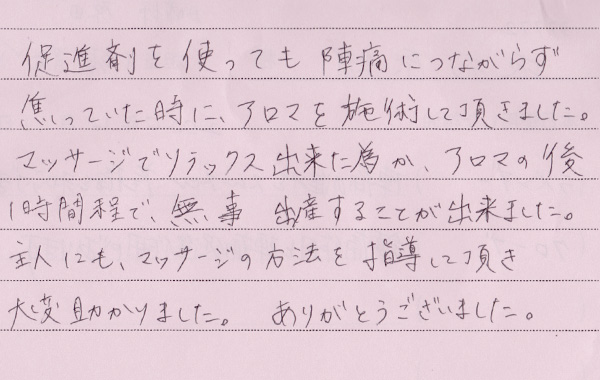 促進剤を使っても陣痛につながらず
焦っていた時に、アロマを施術して頂きました。
マッサージでリラックス出来た為か、アロマの後
1時間程で、無事 出産することが出来ました。
主人にも、マッサージの方法を指導して頂き
大変助かりました。 ありがとうございました。